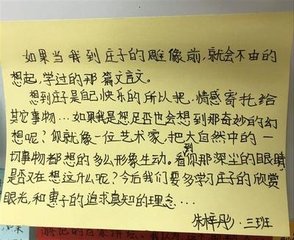 如果当我到庄子的雕像前,就会不由的
想起,学过的那篇文言文。
想到庄子是自己快乐的所以把,情感寄托给
其它事物…如果我是想是否也会想到那奇妙的幻
想呢?你就像一位艺术家,把大自然中的一
切事物都想的多么形象生动。看你那深尘的眼睛
是否又在想这什么呢?今后我们要多学习庄子的欣赏
眼光,和惠子的追求真知的理念…
三班